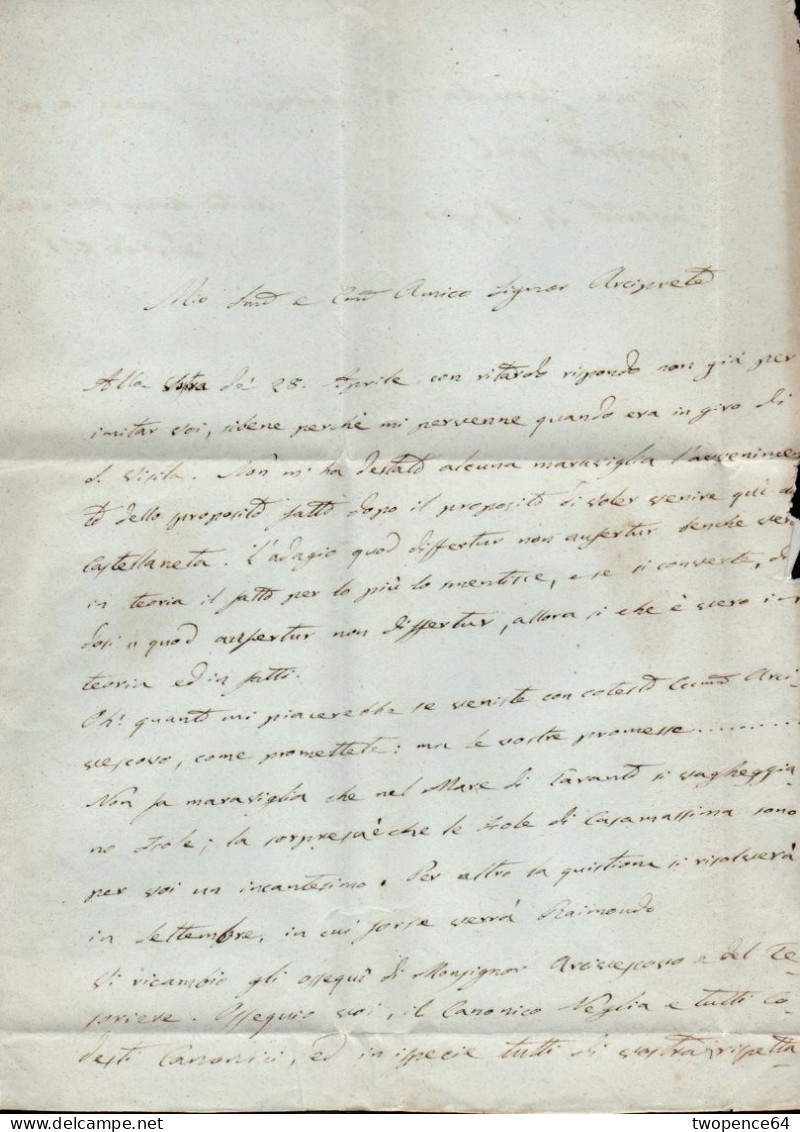 Mio e Amico Signor Arciprete
Alla Vostra de' 28. Aprile con ritardo rispondo non già per
imitar voi, sibene perchè mi pervenne quando era in giro di
S. Visita. Non mi ha destato alcuna maraviglia l'avvenimen
to dello proposito fatto dopo il proposito di voler venire quì a
Castellaneta. L'adagio quod differtur non aufertur benchè ver
in teoria il fatto per lo più lo smentisce, e se si converte, di
dosi quod aufertur non differtur, allora si che è vero in
teoria ed in fatti.
Oh! quanto mi piacerebbe se veniste con cotesto Arci-
vescovo, come promettete: ma le vostre promesse ..........
Non fa maraviglia che nel Mare di Taranto si vagheggia
no Isole; la sorpresa è che le Isole di Casamassima sono
per voi un incantesimo. Per altro la quistione si risolverà
in Settembre, in cui forse verrà Raimondo
Vi ricambio gli ossequi di Monsignor Arcivescovo e del Te-
soriere. Ossequio voi, il Canonico Neglia e tutti Co-
desti Canonici, ed in ispecie tutti di vostra rispetta
twopence64